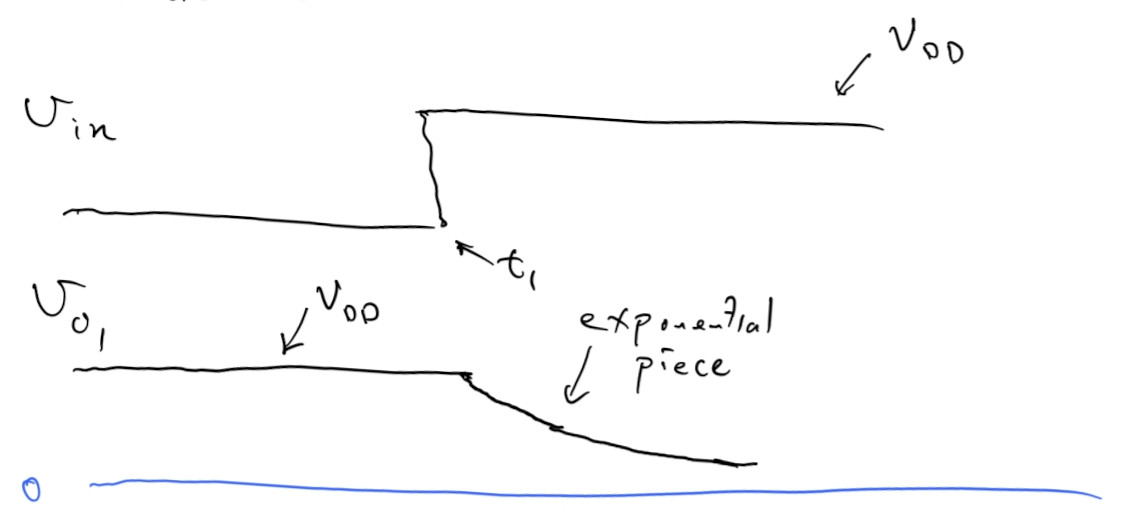 V_DD
v_in
t_1
v_o1
V_DD
exponential
piece
0